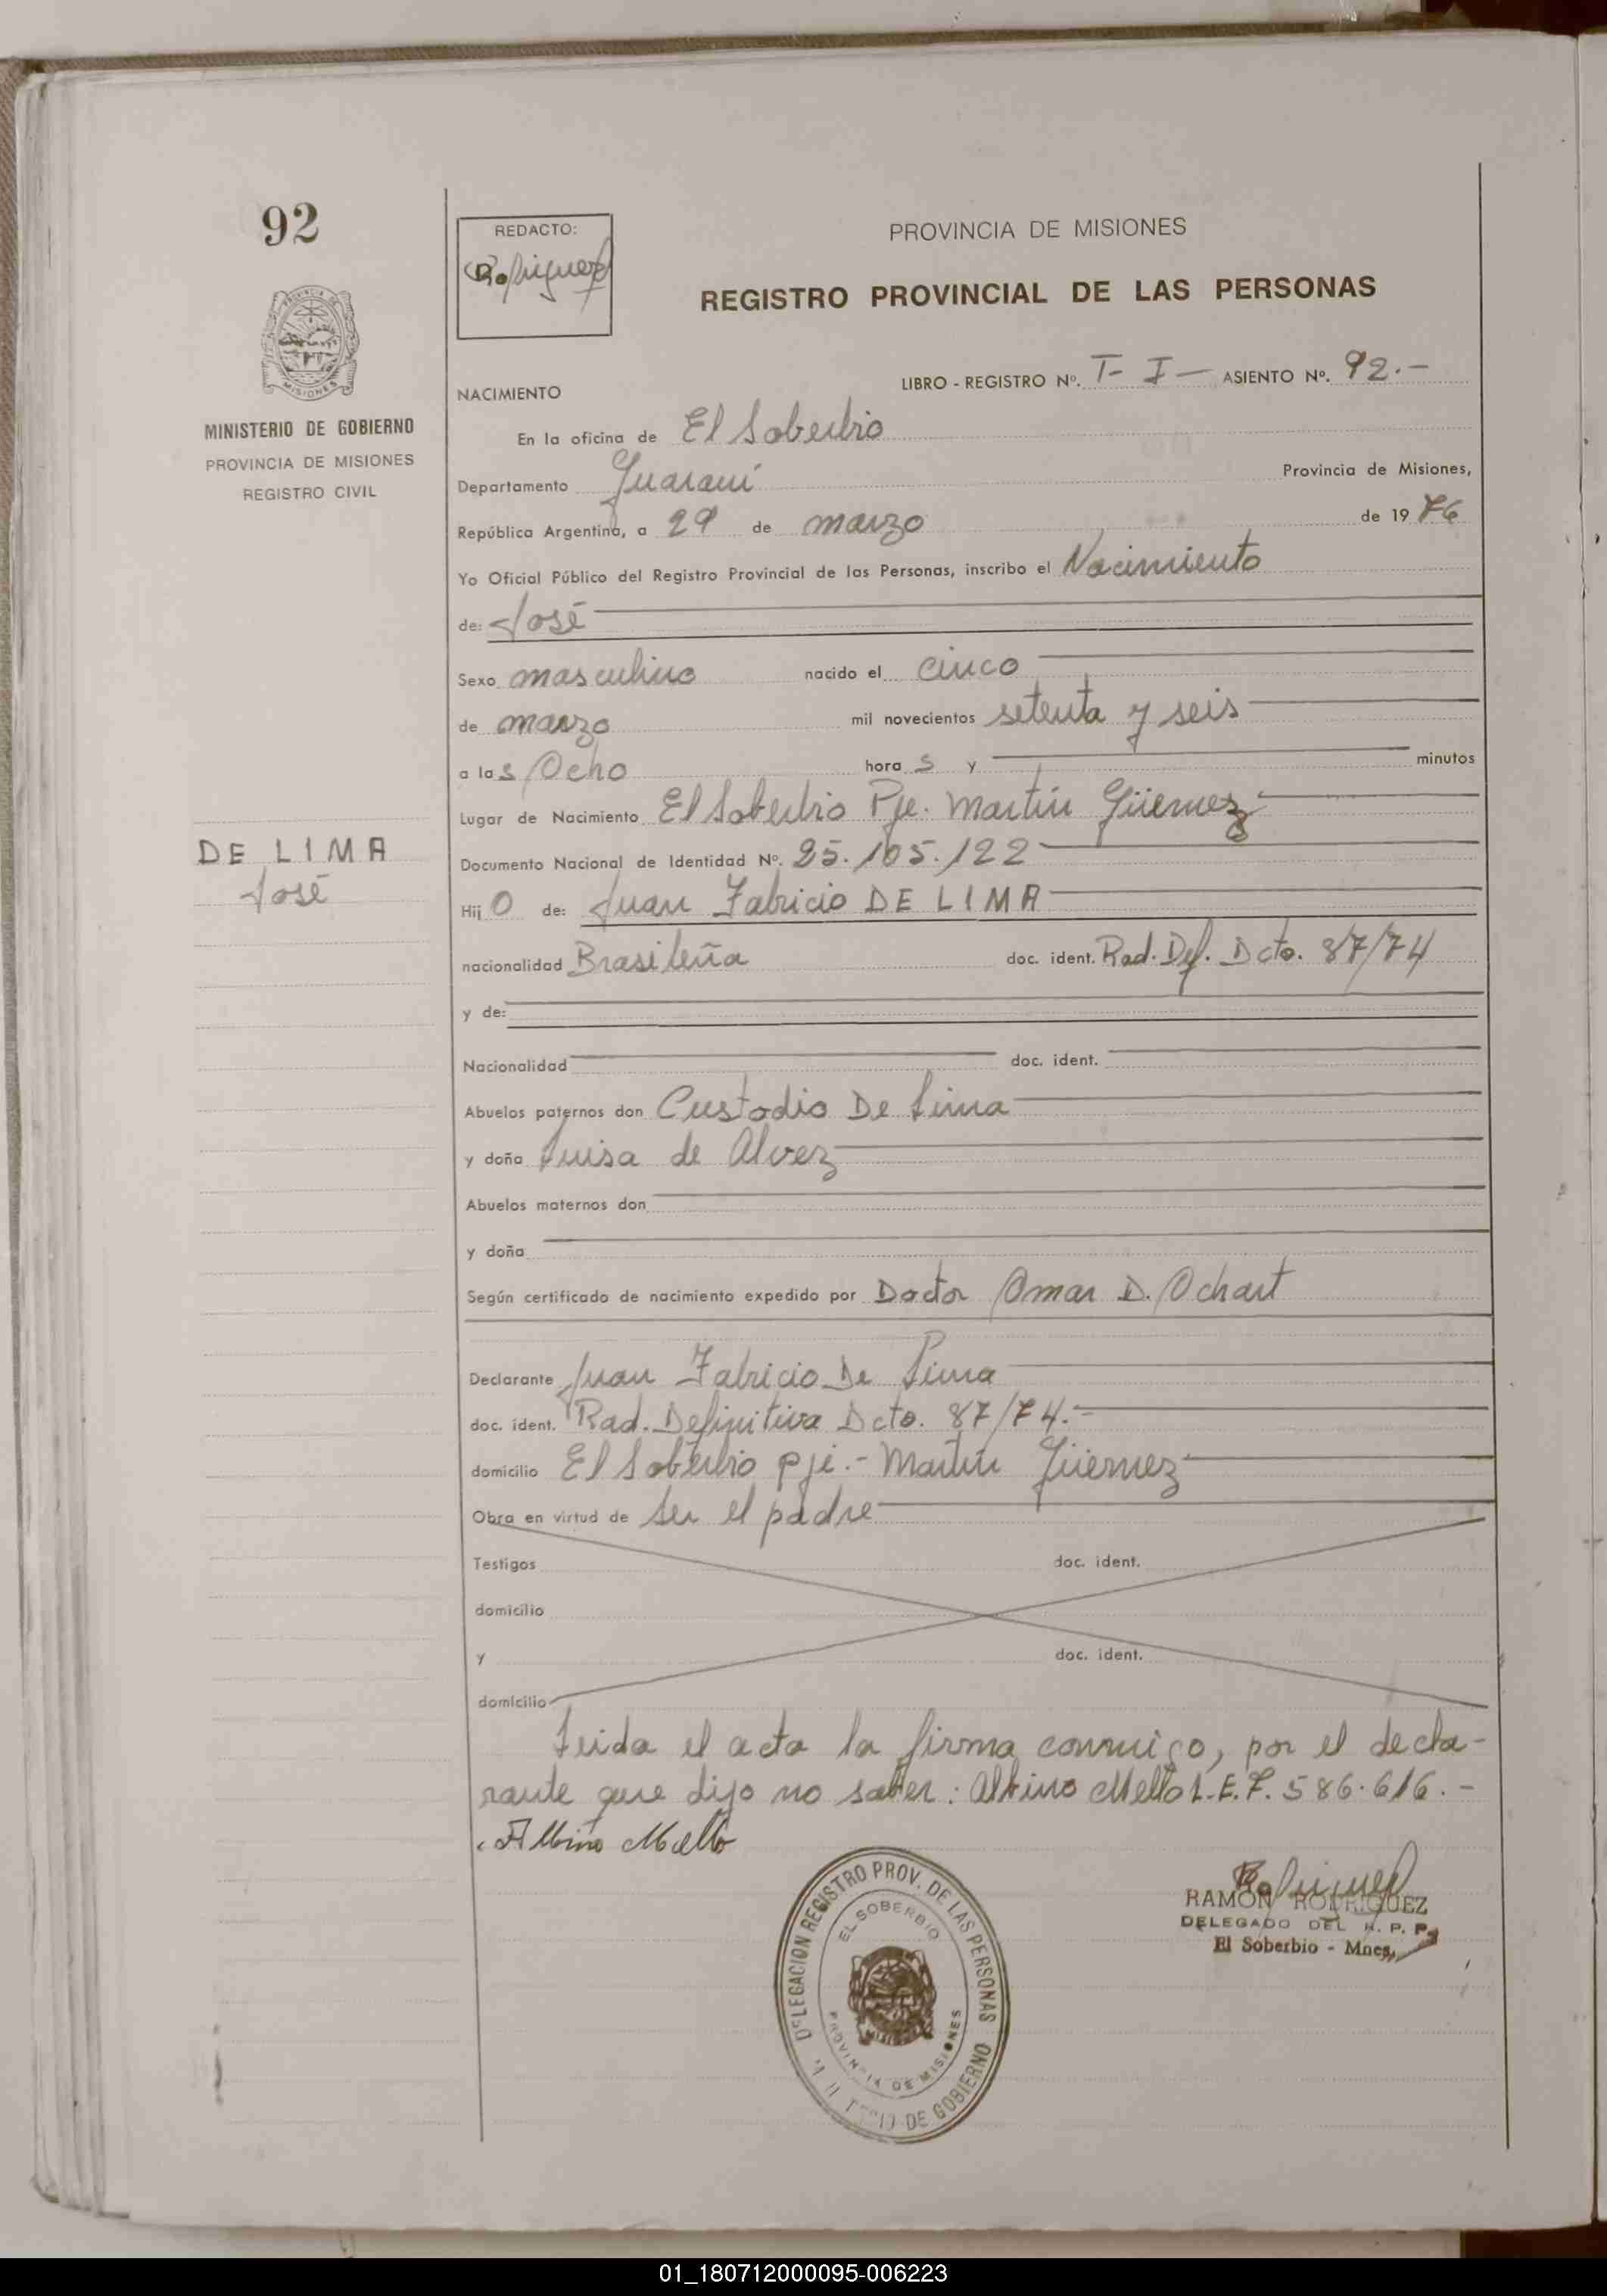 92
REDACTO:
Rodriguez
PROVINCIA DE MISIONES
REGISTRO PROVINCIAL DE LAS PERSONAS
MISIONES
MINISTERIO DE GOBIERNO
PROVINCIA DE MISIONES
REGISTRO CIVIL
LIBRO - REGISTRO Nº. T- I - ASIENTO Nº. 92.-
NACIMIENTO
En la oficina de El Soberbio
Departamento Guaraní Provincia de Misiones,
República Argentina, a 29 de marzo de 1976
Yo Oficial Público del Registro Provincial de las Personas, inscribo el Nacimiento
de: José
Sexo masculino nacido el cinco
de marzo mil novecientos setenta y seis
a las Ocho horas y minutos
Lugar de Nacimiento El Soberbio Pje. Martín Güemez
DE LIMA
José
Documento Nacional de Identidad Nº. 25.105.122
Hijo de: Juan Fabricio DE LIMA
nacionalidad Brasileña doc. ident. Rad. Def. Dcto. 87/74
y de:
Nacionalidad doc. ident.
Abuelos paternos don Custodio De Lima
y doña Luisa de Alvez
Abuelos maternos don
y doña
Según certificado de nacimiento expedido por Doctor Omar D. Ochart
Declarante Juan Fabricio De Lima
doc. ident. Rad. Definitiva Dcto. 87/74.-
domicilio El Soberbio pje.- Martín Güemez
Obra en virtud de ser el padre
Testigos doc. ident.
domicilio
y doc. ident.
domicilio
Leida el acta la firma conmigo, por el decla-
rante que dijo no saber: Albino Mello L.E.7.586.616.-
Albino Mello
DELEGACION REGISTRO PROV. DE LAS PERSONAS
EL SOBERBIO
PROVINCIA DE MISIONES
DE GOBIERNO
Rodriguez
RAMÓN RODRIGUEZ
DELEGADO DEL R. P. P.
El Soberbio - Mnes,
01_180712000095-006223